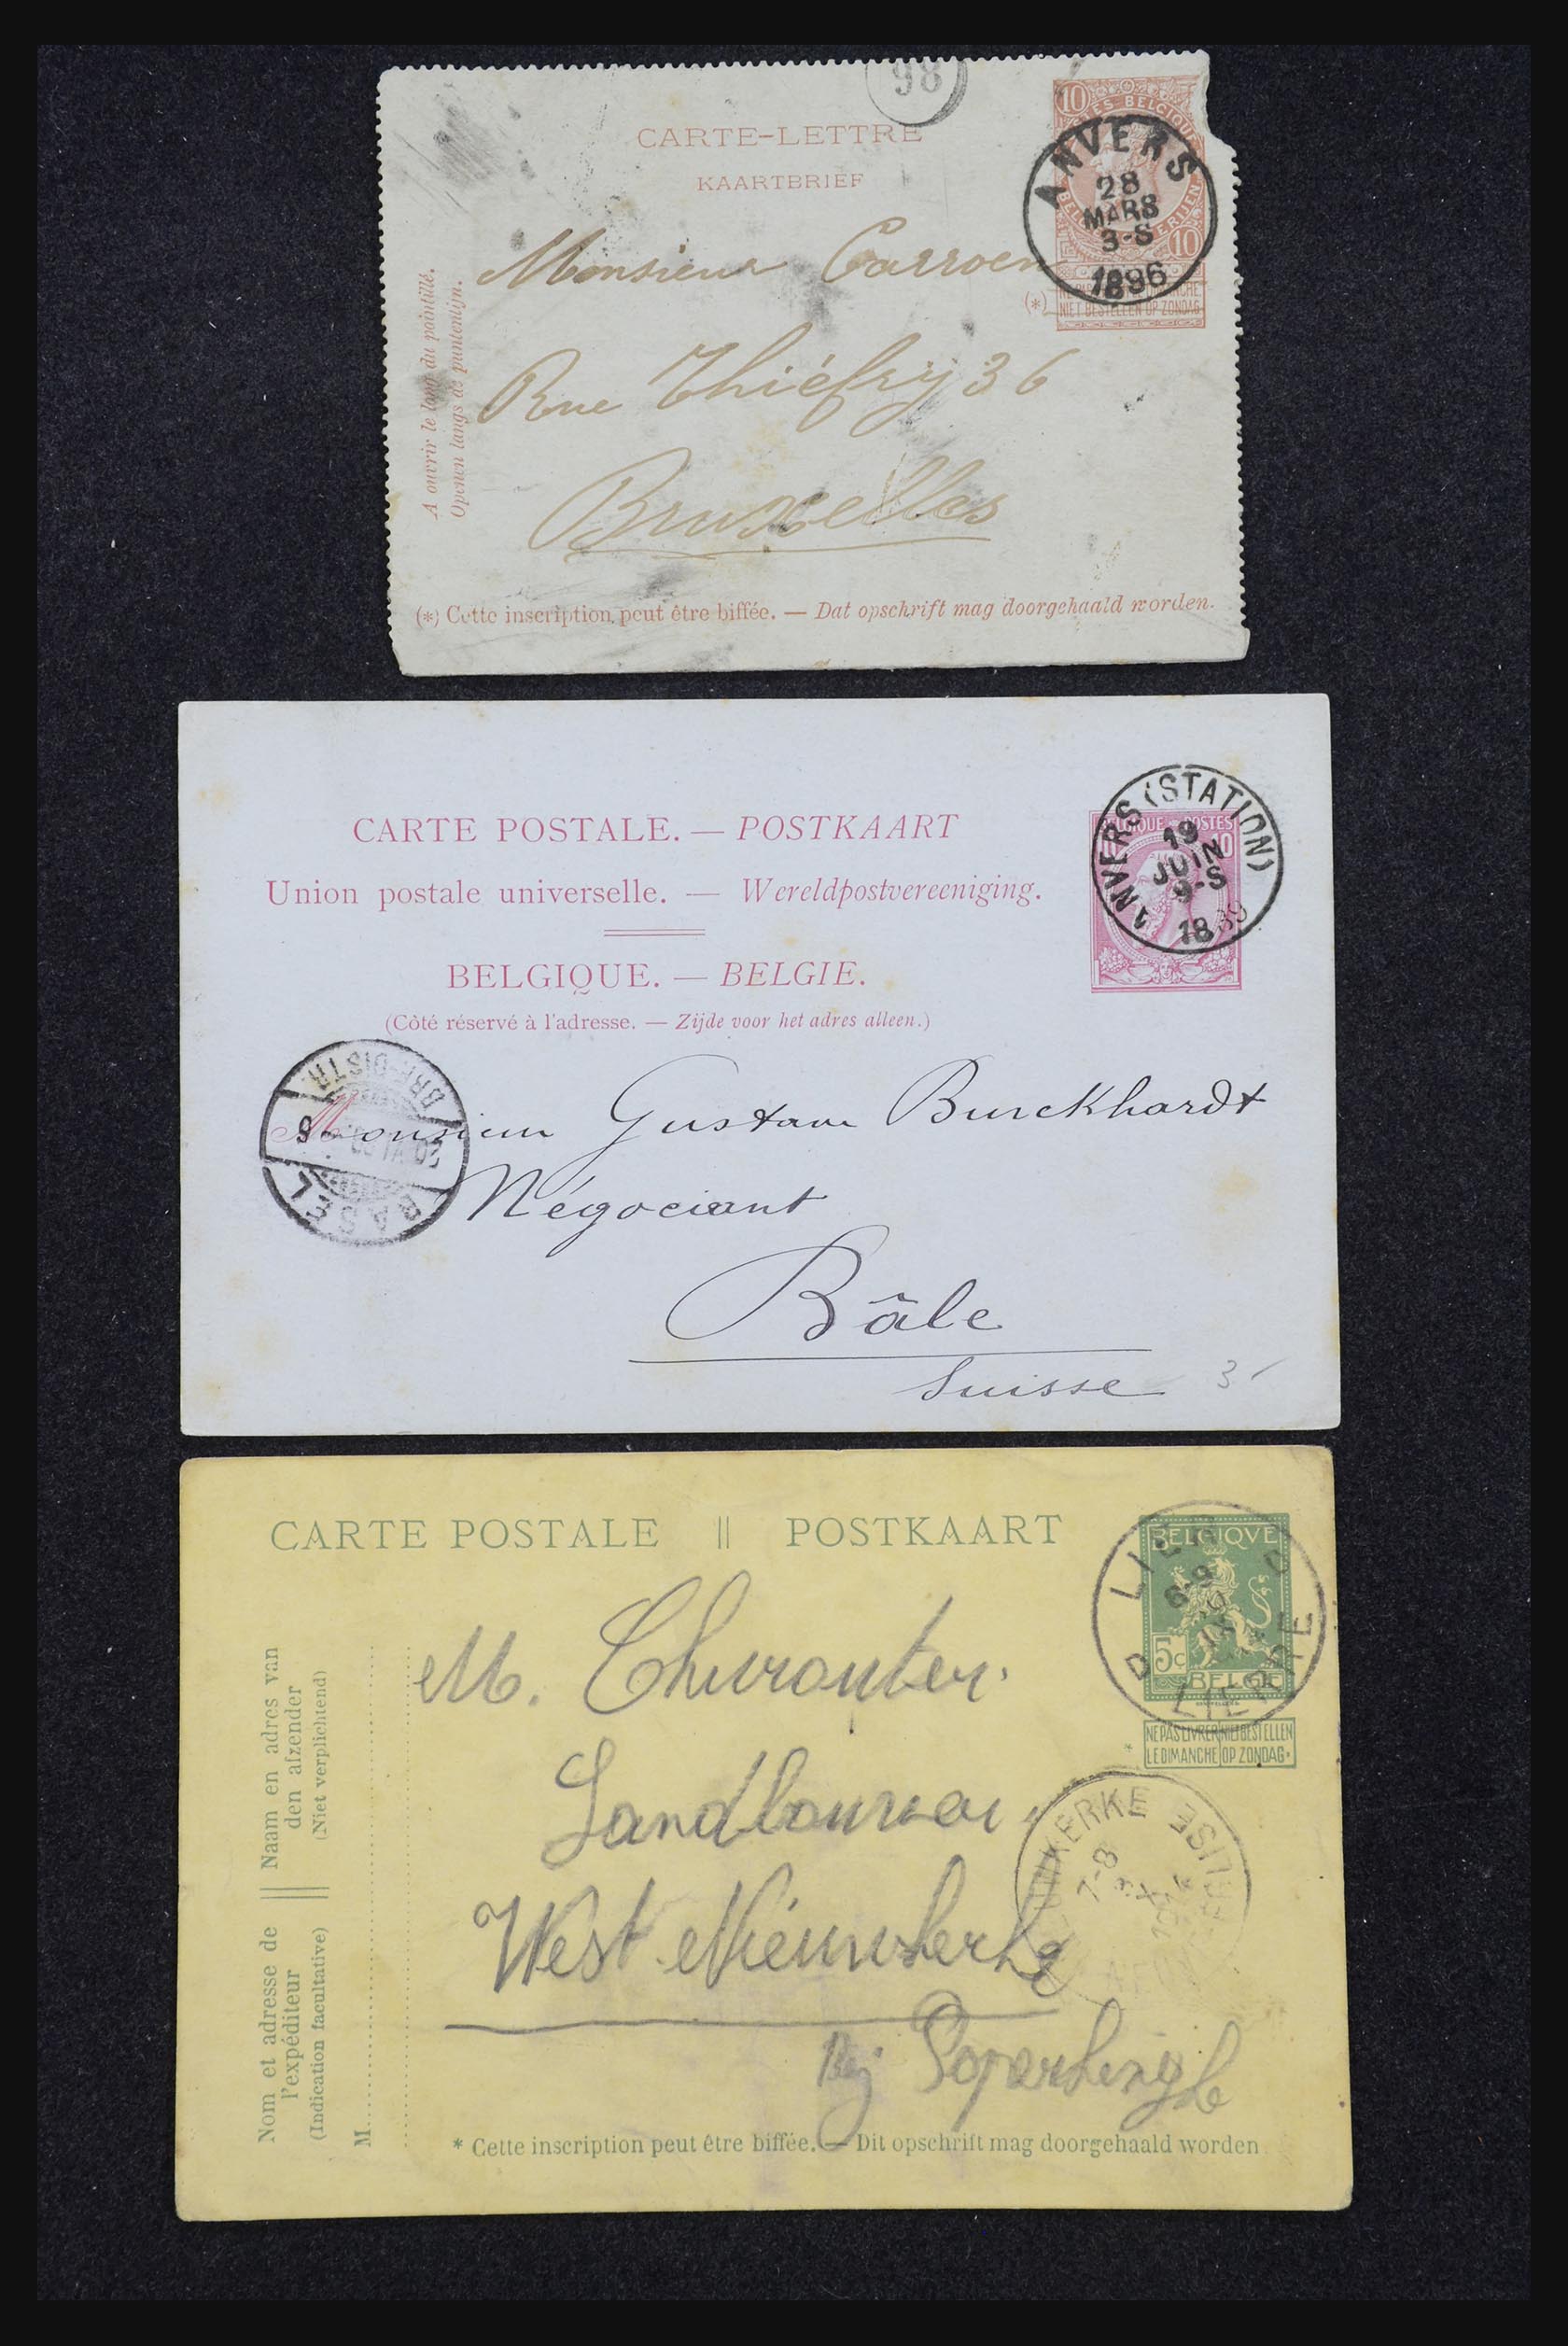 98
CARTE-LETTRE
KAARTBRIEF
10
ES BELGIQUE
ANVERS
28
MARS
3-S
1896
10
Monsieur Carroen
(*)
NIET BESTELLEN OP ZONDAG
Rue Thiéfry 36
Bruxelles
A ouvrir le long du pointillé.
Openen langs de puntenlijn.
(*) Cette inscription peut être biffée. — Dat opschrift mag doorgehaald worden.
CARTE POSTALE. — POSTKAART
Union postale universelle. — Wereldpostvereeniging.
BELGIQUE. — BELGIE.
(Côté réservé à l'adresse. — Zijde voor het adres alleen.)
BELGIQUE POSTES
10 10
ANVERS (STATION)
19
JUIN
9-S
1889
BRF. DISTR.
BASEL
Monsieur Gustave Burckhardt
Négociant
Bâle
Suisse
3
CARTE POSTALE || POSTKAART
BELGIQVE
5c
BELGIE
LIER
6-9
LIERRE
NE PAS LIVRER LE DIMANCHE
NIET BESTELLEN OP ZONDAG
*
M.
West Nieuwkerke
Bij Poperinghe
KERKE
7-8
EGLISE
Naam en adres van
den afzender
(Niet verplichtend)
Nom et adresse de
l'expéditeur
(Indication facultative)
M
* Cette inscription peut être biffée. — Dit opschrift mag doorgehaald worden